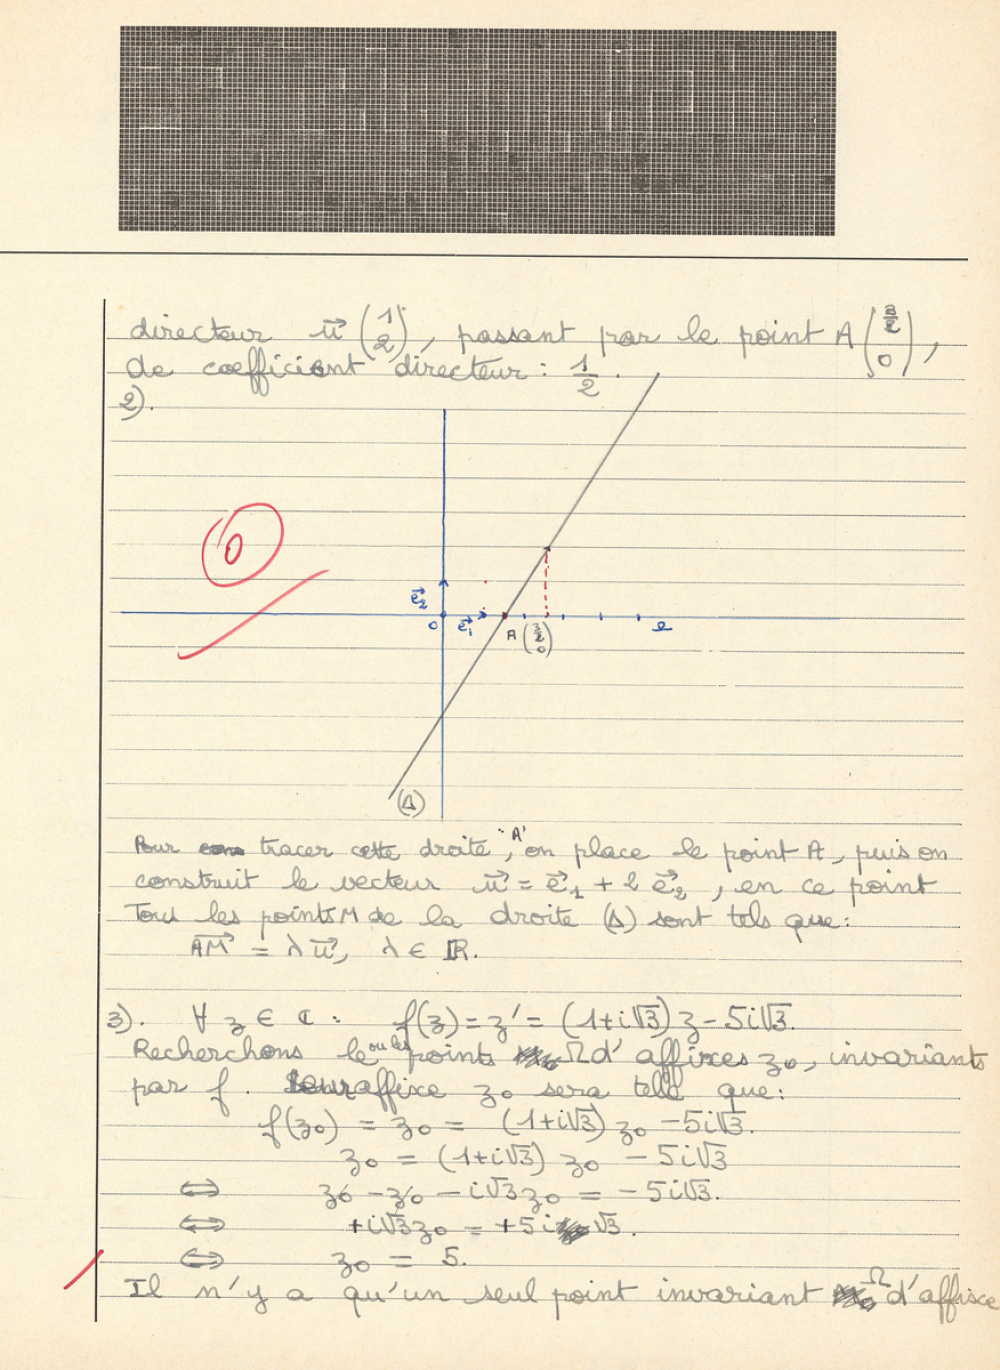 directeur u⃗ (1 2), passant par le point A (3/2 0),
de coefficient directeur : 1/2.
2).
0
e⃗₂
O e⃗₁ A (3/2 0) Ω
(Δ)
Pour tracer cette droite, "A' on place le point A, puis on
construit le vecteur u⃗ = e⃗₁ + 2 e⃗₂, en ce point
Tous les points M de la droite (Δ) sont tels que :
AM⃗ = λ u⃗, λ ∈ ℝ.
3). ∀ z ∈ ℂ : f(z) = z' = (1+i√3) z - 5i√3.
Recherchons le ou les points Ω d'affixes z₀, invariants
par f. Leur affixe z₀ sera telle que :
f(z₀) = z₀ = (1+i√3) z₀ - 5i√3.
z₀ = (1+i√3) z₀ - 5i√3
⇔ z₀ - z₀ - i√3 z₀ = - 5i√3.
⇔ +i√3 z₀ = +5i √3.
⇔ z₀ = 5.
Il n'y a qu'un seul point invariant Ω d'affixe